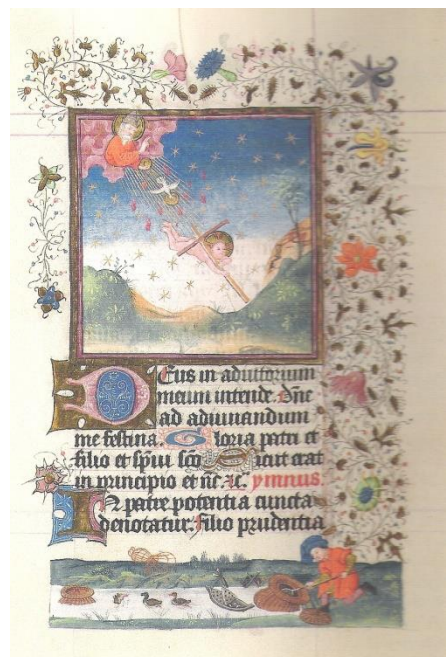 Deus in adiutorium
meum intende. Dn̄e
ad adiuuandum
me festina. Gloria patri et
filio et sp̄iu sc̄o Sicut erat
in principio et nc̄. ⁊c. ymnus.
In patre potentia cuncta
denotatur. filio prudentia